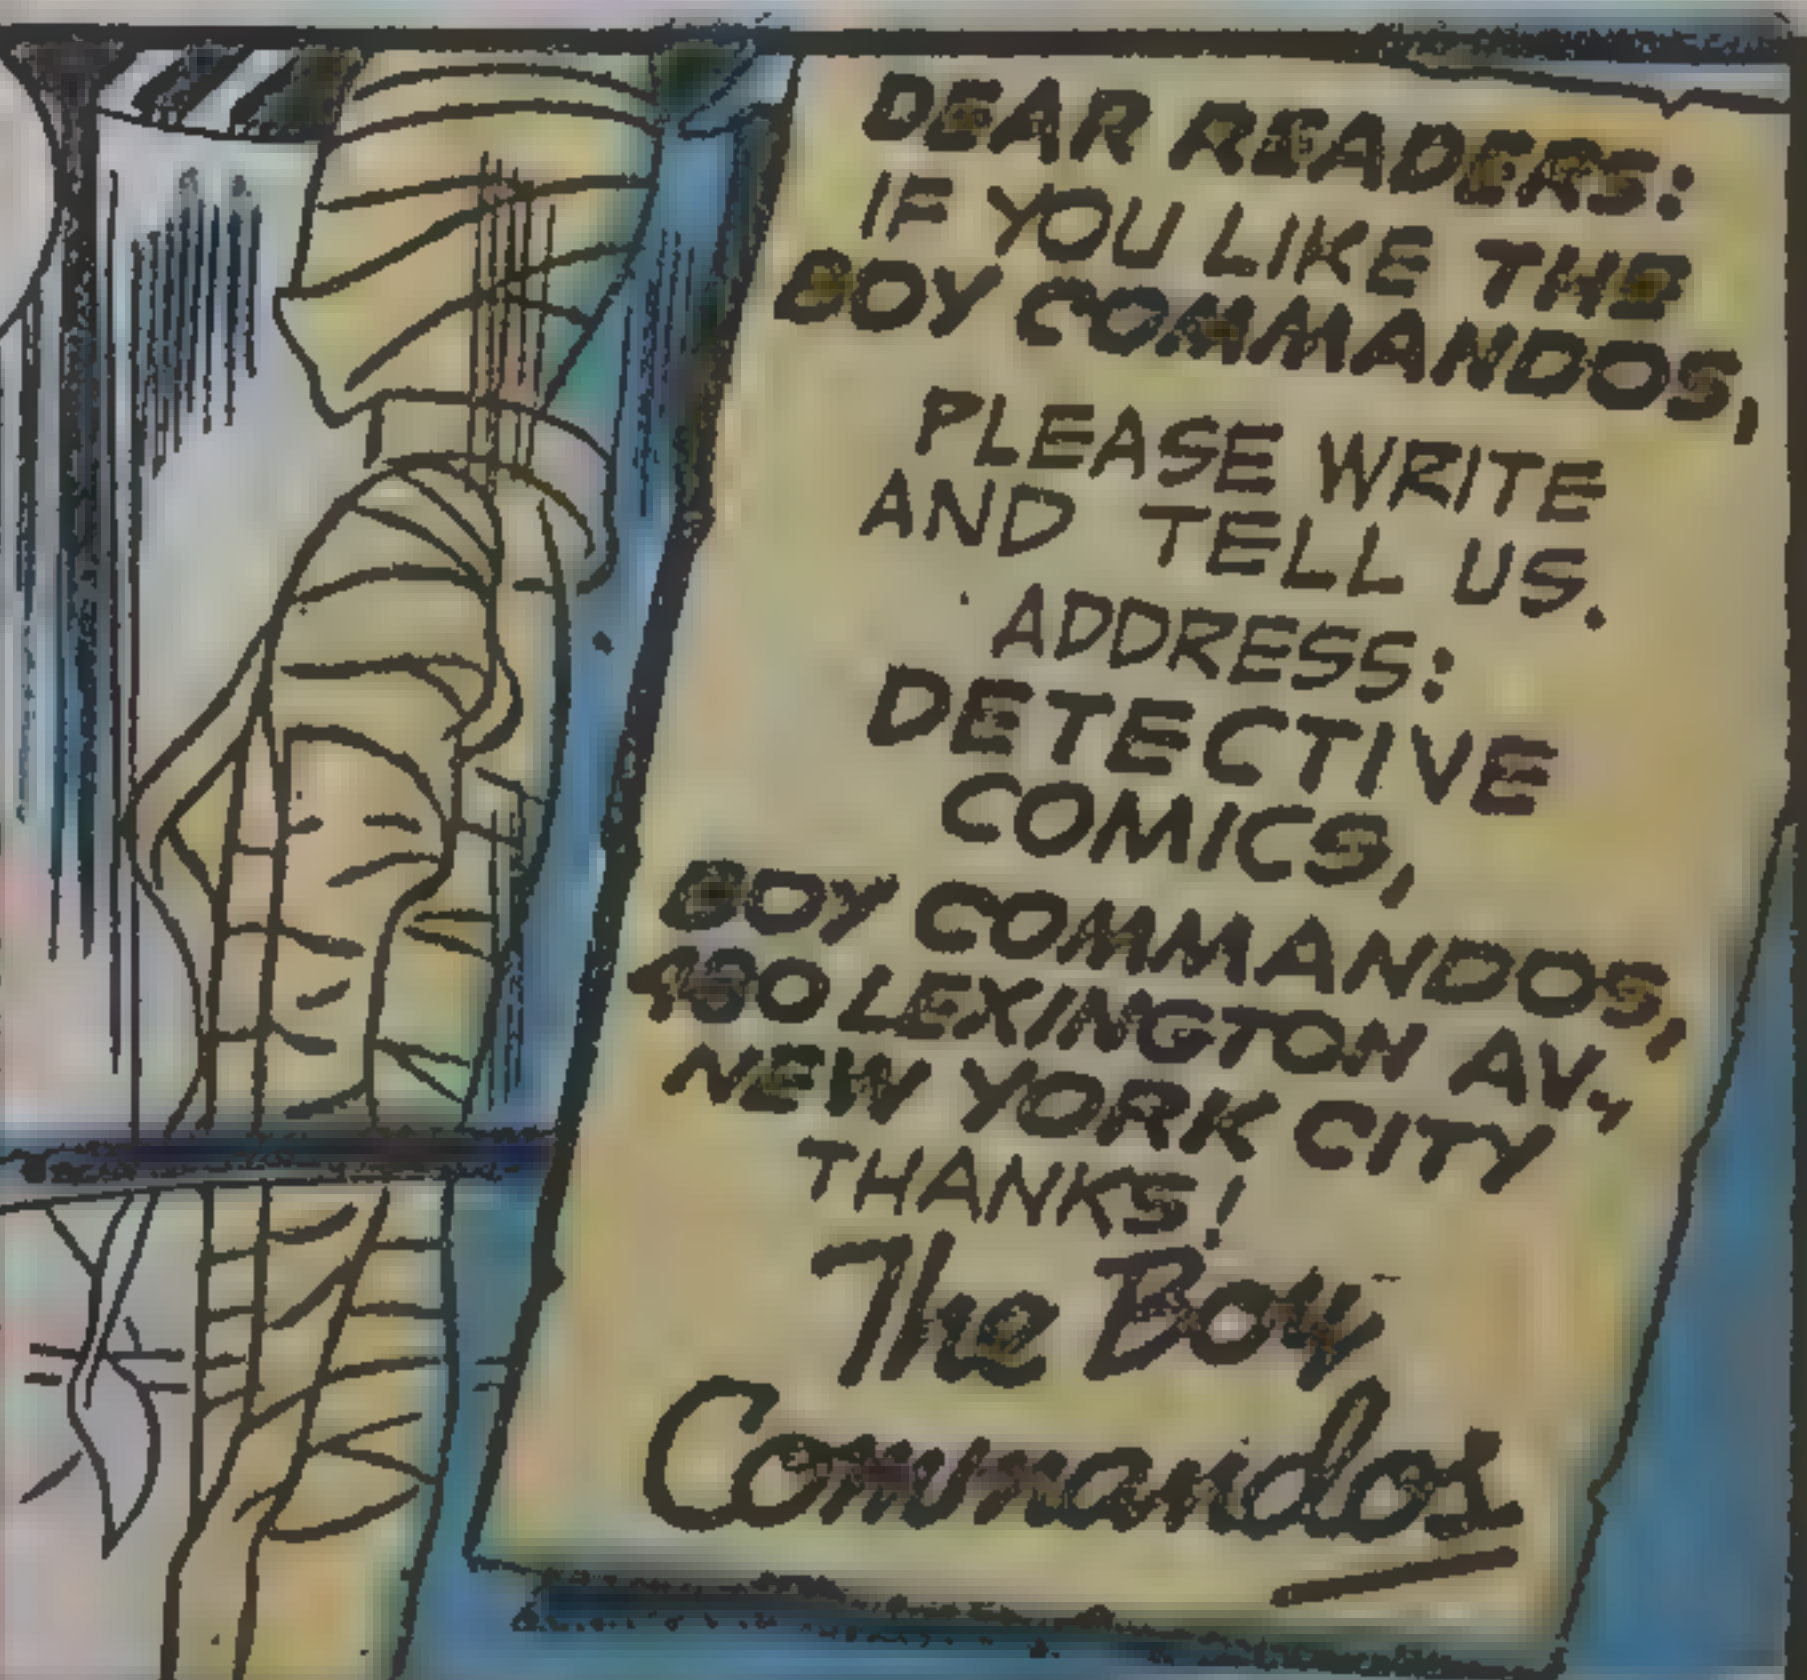 DEAR READERS:
IF YOU LIKE THE
BOY COMMANDOS,
PLEASE WRITE
AND TELL US.
ADDRESS:
DETECTIVE
COMICS,
BOY COMMANDOS,
480 LEXINGTON AV.,
NEW YORK CITY
THANKS!
The Boy
Commandos